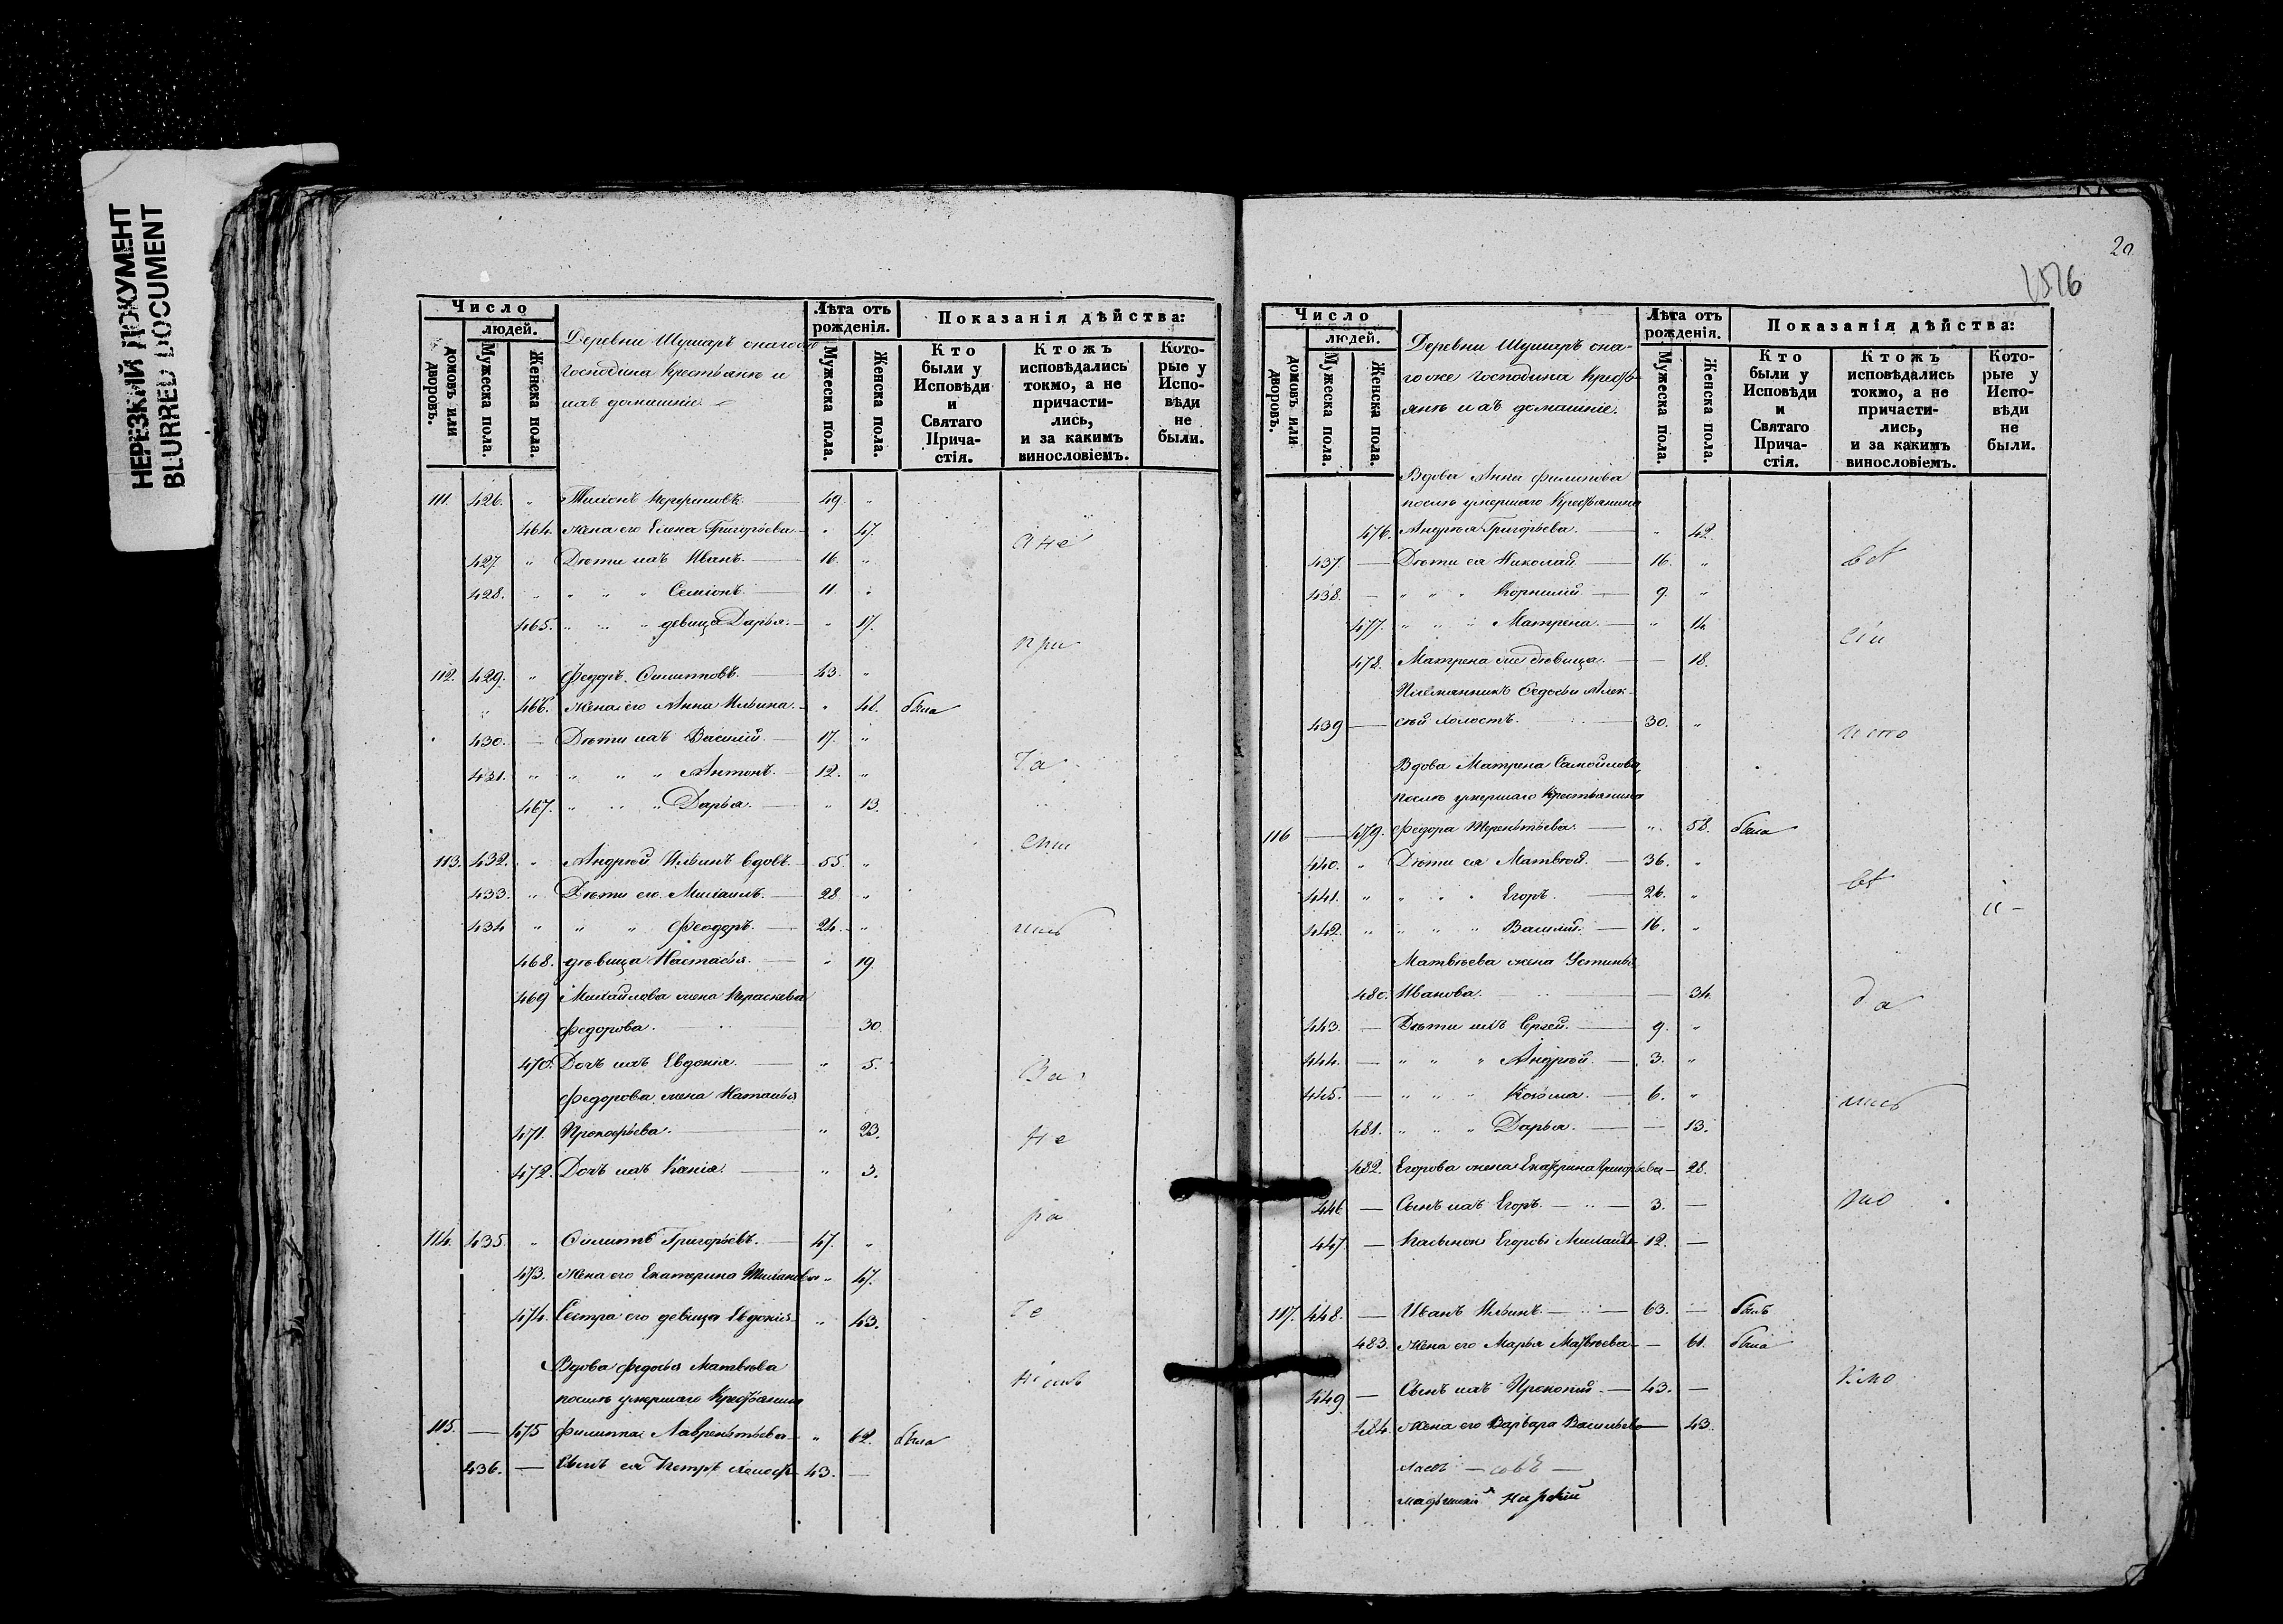 НЕРЕЗКИЙ ДОКУМЕНТ
BLURRED DOCUMENT
Число
людей.
домовъ или дворовъ.
Мужеска пола.
Женска пола.
Деревни Шушаръ онагоже
господина Крестьяне и
ихъ домашніе.
Лѣта отъ рожденія.
Мужеска пола.
Женска пола.
Показанія дѣйства:
Кто были у Исповѣди и Святаго Прича-стія.
Ктожъ исповѣдались токмо, а не причасти-лись, и за какимъ винословіемъ.
Кото-рые у Испо-вѣди не были.
111. 426. " Тихонъ 49. "
464. Жена его Елена Григорьева " 47.
а не
427. " Дѣти ихъ Иванъ. 16. "
428. " " " " Семіонъ. 11. "
465. " " " девица Дарья. " 17.
при
112. 429. " Федоръ. Филиповъ. 43. "
" 466. Жена его Анна Ильина. " 41. была
430. — Дѣти ихъ Василій. 17. "
431. " " " " Антонъ. 12. "
ча
467. " " " Дарья. " 13.
сти
113. 432. " Андрей Ильинъ вдовъ. 55. "
433. " Дѣти его Михаилъ. 28. "
434 " " " Феодоръ. 24. "
лись
468. дѣвица Настасья. " 19.
469 Михайлова жена Параскева
Федорова. 30.
470. Дочь ихъ Евдокія. " 5.
За
Федорова жена Наталья
471. Прокофьева. " 23.
не
472. Дочь ихъ Ксенія. " 3.
ра
114. 435. " Филипъ Григорьевъ. 47. "
473. Жена его Екатерина Тиханова " 47.
474. Сестра его девица Евдокія " 43.
Вдова Федосья Матвѣева
послѣ умершаго Крестьянина
115. — 475 Филиппа Лаврентьева " 62. была
436. — Сынъ ея Петръ холостъ 43. —
20
1576
Число
людей.
домовъ или дворовъ.
Мужеска пола.
Женска пола.
Деревни Шушаръ она-
гоже господина Кресть-
яне и ихъ домашніе.
Лѣта отъ рожденія.
Мужеска пола.
Женска пола.
Показанія дѣйства:
Кто были у Исповѣди и Святаго Прича-стія.
Ктожъ исповѣдались токмо, а не причасти-лись, и за какимъ винословіемъ.
Кото-рые у Испо-вѣди не были.
Вдова Анна Филипова
послѣ умершаго Крестьянина
476. Андрея Григорьева. " 42.
437. — Дѣти ея Николай 16. "
438. — " " " Корнилій 9. "
477. " " " Матрена. " 14
478. Матрена же дѣвица. — 18.
Племянникъ Федосьи Алек-
439 — сѣй холостъ. 30. "
Вдова Матрена Самойлова,
послѣ умершаго Крестьянина
116 — 479. Федора Терентьева. " 58. была
440. " Дѣти ея Матвѣй. 36. "
441. " " " " Егоръ. 26. "
442. " " " " Василій. 16. "
Матвѣева жена Устинья
480. Иванова. — 34.
да
443. — Дѣти ихъ Сергей. 9. "
444. — " " " Андрей. 3. "
445. — " " " Козьма. 6. "
лись
481. " " " Дарья. — 13.
482. Егорова жена Екатерина Григорьева — 28.
446 — Сынъ ихъ Егоръ. 3. —
447. — Пасынокъ Егоровъ Михаилъ 12. —
117. 448. — Иванъ Ильинъ. 63. — былъ
483. Жена его Марья Матвѣева — 61. была
449 — Сынъ ихъ Прокопій. 43. —
484. Жена его Варвара Васильева — 43.